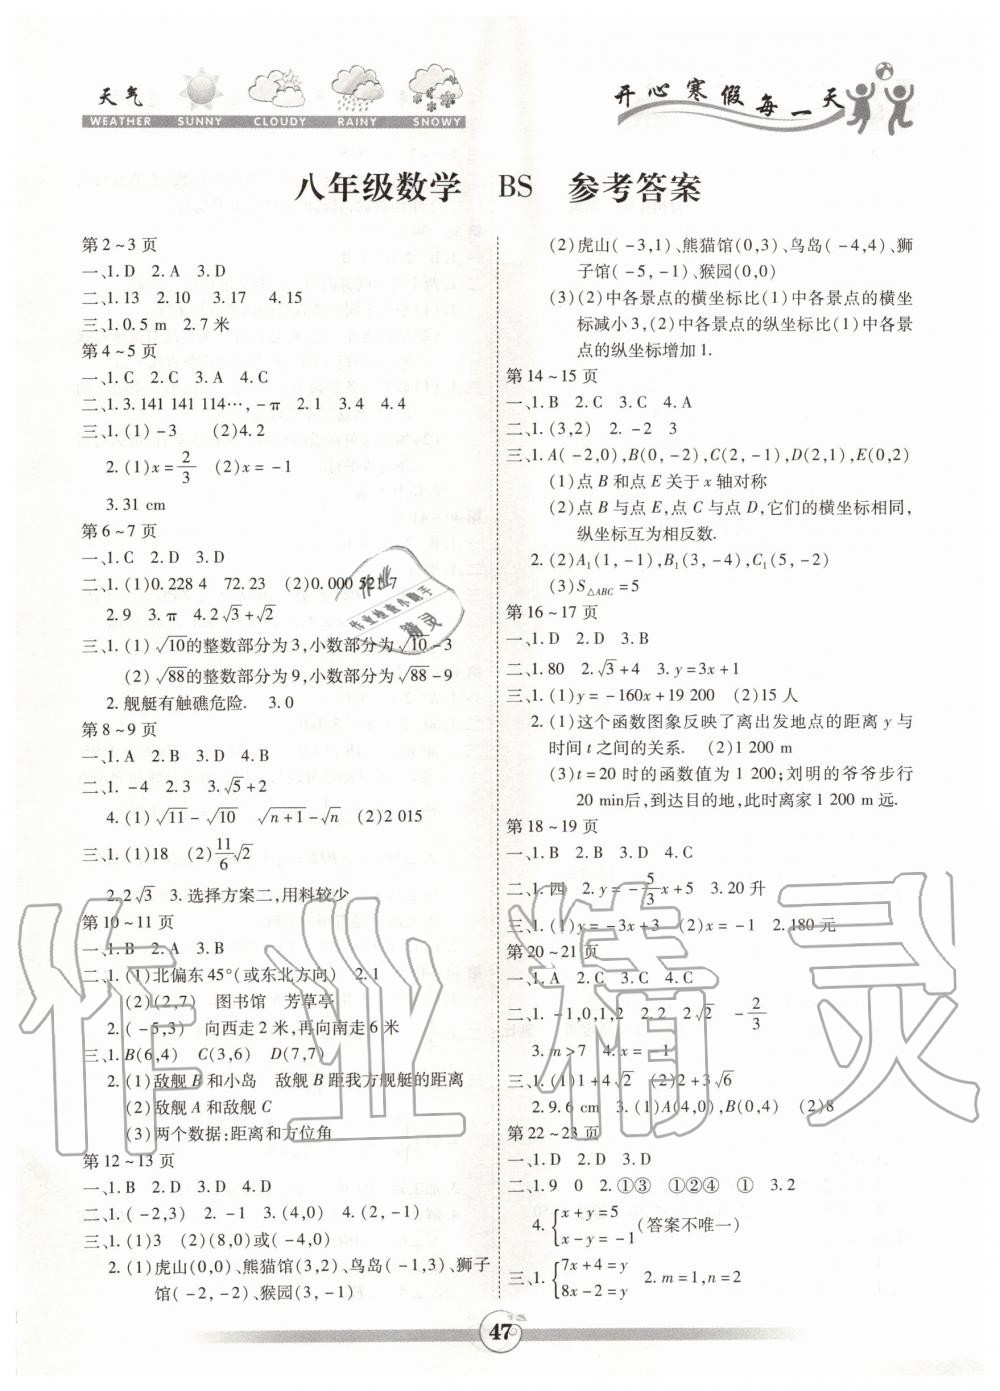 天气
WEATHER SUNNY CLOUDY RAINY SNOWY
开心寒假每一天
八年级数学 BS 参考答案
第2~3页
一、1. D 2. A 3. D
二、1. 13 2. 10 3. 17 4. 15
三、1. 0.5 m 2. 7米
第4~5页
一、1. C 2. C 3. A 4. C
二、1. 3.141 141 114…, -π 2. 1 3. 4 4. 4
三、1. (1) -3 (2)4.2
2. (1)x=2/3 (2)x=-1
3. 31 cm
第6~7页
一、1. C 2. D 3. D
二、1. (1)0.228 4 72.23 (2)0.000 521 7
2. 9 3. π 4. 2√3+√2
三、1. (1) √10的整数部分为3,小数部分为√10-3
(2) √88的整数部分为9,小数部分为√88-9
2. 舰艇有触礁危险. 3. 0
第8~9页
一、1. A 2. B 3. D 4. B
二、1. -4 2. 3 3. √5+2
4. (1) √11-√10 √n+1-√n (2)2 015
三、1. (1)18 (2)11/6√2
2. 2√3 3. 选择方案二,用料较少
第10~11页
一、1. B 2. A 3. B
二、1. (1)北偏东45°(或东北方向) 2. 1
(2)(2,7) 图书馆 芳草亭
2. (-5,3) 向西走2米,再向南走6米
三、1. B(6,4) C(3,6) D(7,7)
2. (1)敌舰B和小岛 敌舰B距我方舰艇的距离
(2)敌舰A和敌舰C
(3)两个数据:距离和方位角
第12~13页
一、1. B 2. D 3. D 4. D
二、1. (-2,3) 2. -1 3. (4,0) 4. (2,-1)
三、1. (1)3 (2)(8,0)或(-4,0)
2. (1)虎山(0,0)、熊猫馆(3,2)、鸟岛(-1,3)、狮子
馆(-2,-2)、猴园(3,-1)
(2)虎山(-3,1)、熊猫馆(0,3)、鸟岛(-4,4)、狮
子馆(-5,-1)、猴园(0,0)
(3)(2)中各景点的横坐标比(1)中各景点的横坐
标减小3,(2)中各景点的纵坐标比(1)中各景
点的纵坐标增加1.
第14~15页
一、1. B 2. C 3. C 4. A
二、1. (3,2) 2. -2 3
三、1. A(-2,0),B(0,-2),C(2,-1),D(2,1),E(0,2)
(1)点B和点E关于x轴对称
(2)点B与点E,点C与点D,它们的横坐标相同,
纵坐标互为相反数.
2. (2)A₁(1,-1),B₁(3,-4),C₁(5,-2)
(3)S△ABC=5
第16~17页
一、1. D 2. D 3. D
二、1. 80 2. √3+4 3. y=3x+1
三、1. (1)y=-160x+19 200 (2)15人
2. (1)这个函数图象反映了离出发地点的距离y与
时间t之间的关系. (2)1 200 m
(3)t=20时的函数值为1 200;刘明的爷爷步行
20 min后,到达目的地,此时离家1 200 m远.
第18~19页
一、1. B 2. B 3. D 4. C
二、1. 四 2. y=-5/3x+5 3. 20升
三、1. (1)y=-3x+3 (2)x=-1 2. 180元
第20~21页
一、1. A 2. C 3. C 4. C
二、1. -1,0,1,2 2. 2 2√2 -2/3
3. m>7 4. x=-1
三、1. (1)1+4√2 (2)2+3√6
2. 9.6 cm 3. (1)A(4,0),B(0,4) (2)8
第22~23页
一、1. D 2. D 3. D
二、1. 9 0 2. ①③ ①②④ ① 3. 2
4. {x+y=5
x-y=-1 (答案不唯一)
三、1. {7x+4=y
8x-2=y 2. m=1,n=2
47
作业精灵
作业
作业检查小助手
精灵